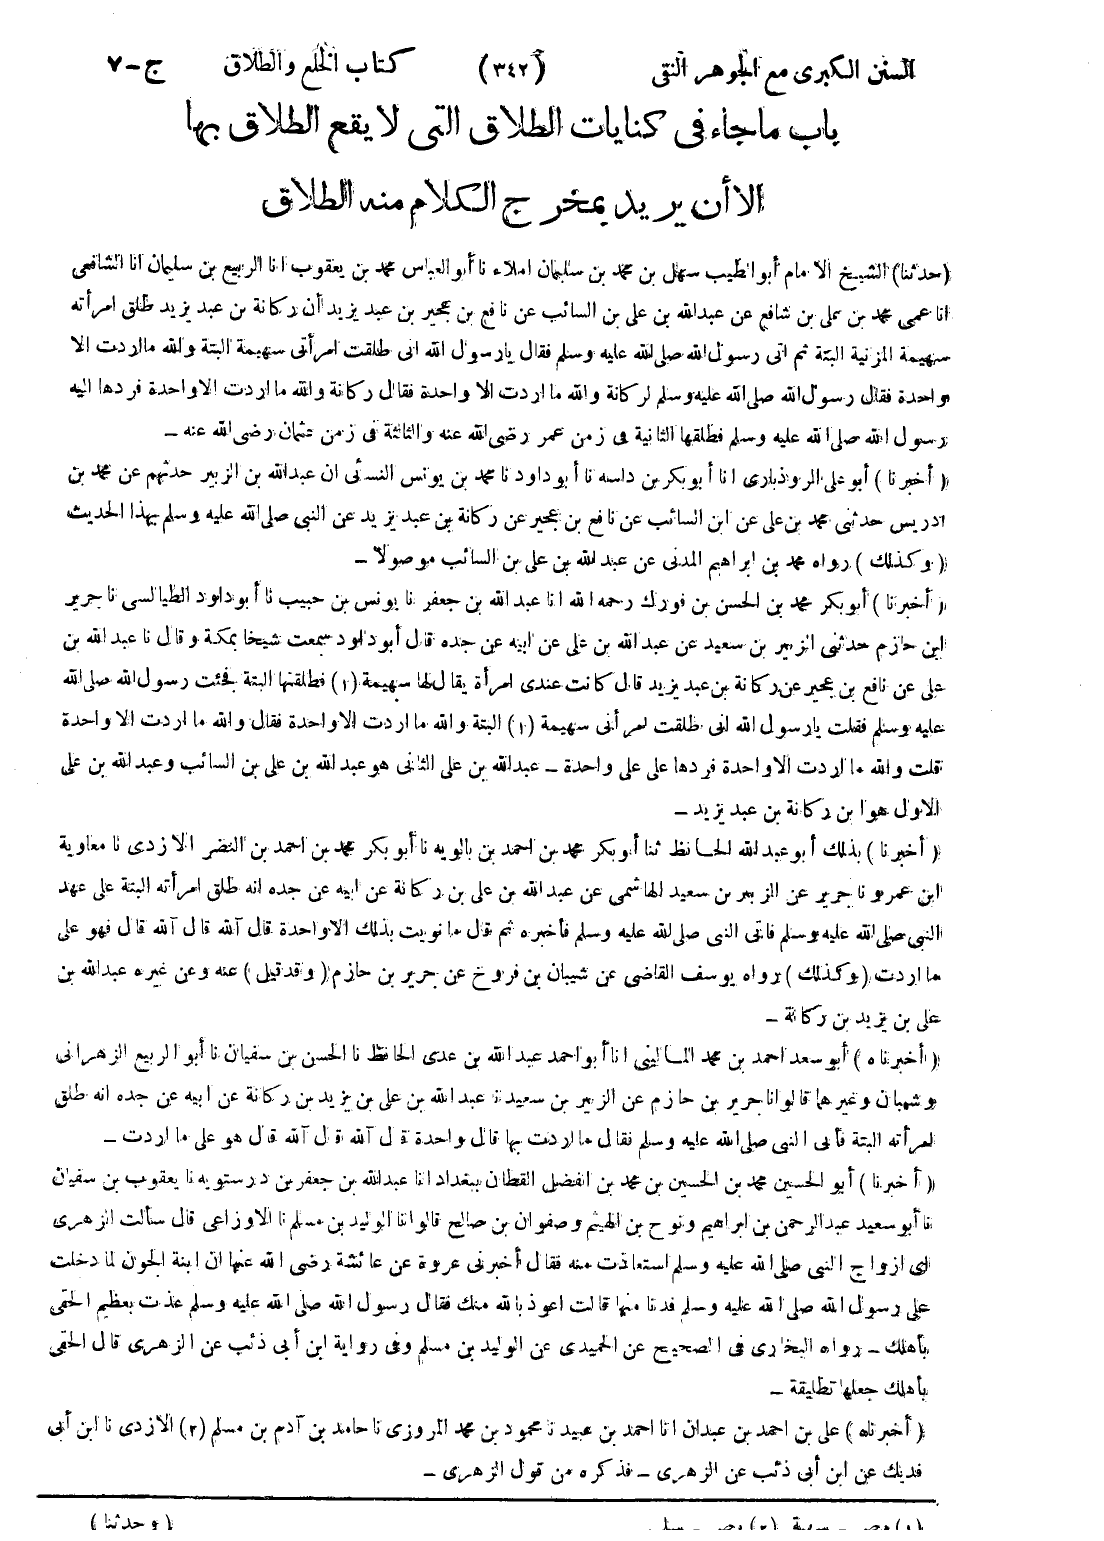 السنن الكبرى مع الجوهر النقى (٣٤٢) كتاب الخلع والطلاق ج-٧
باب ماجاء فى كنايات الطلاق التى لا يقع الطلاق بها
الا أن يريد بمخرج الكلام منه الطلاق
(حدثنا) الشيخ الامام أبو الطيب سهل بن محمد بن سليمان املاء نا أبو العباس محمد بن يعقوب انا الربيع بن سليمان انا الشافعى
انا عمى محمد بن على بن شافع عن عبدالله بن على بن السائب عن نافع بن عجير بن عبد يزيد أن ركانة بن عبد يزيد طلق امرأته
سهيمة المزنية البتة ثم اتى رسول الله صلى الله عليه وسلم فقال يارسول الله انى طلقت امرأتى سهيمة البتة والله مااردت الا
واحدة فقال رسول الله صلى الله عليه وسلم لركانة والله ما اردت الا واحدة فقال ركانة والله ما اردت الا واحدة فردها اليه
رسول الله صلى الله عليه وسلم فطلقها الثانية فى زمن عمر رضى الله عنه والثالثة فى زمن عثمان رضى الله عنه -
(أخبرنا) أبو على الروذبارى انا أبو بكر بن داسه نا أبو داود نا محمد بن يونس النسائى ان عبدالله بن الزبير حدثهم عن محمد بن
ادريس حدثنى محمد بن على عن ابن السائب عن نافع بن عجير عن ركانة بن عبد يزيد عن النبى صلى الله عليه وسلم بهذا الحديث
(وكذلك) رواه محمد بن ابراهيم المدنى عن عبد الله بن على بن السائب موصولا -
(أخبرنا) أبو بكر محمد بن الحسن بن فورك رحمه الله انا عبد الله بن جعفر نا يونس بن حبيب نا أبو داود الطيالسى نا جرير
ابن حازم حدثنى الزبير بن سعيد عن عبدالله بن على عن ابيه عن جده قال أبو داود سمعت شيخا بمكة وقال نا عبد الله بن
على عن نافع بن عجير عن ركانة بن عبد يزيد قال كانت عندى امرأة يقال لها سهيمة (١) فطلقتها البتة فجئت رسول الله صلى الله
عليه وسلم فقلت يارسول الله انى طلقت امرأتى سهيمة (١) البتة والله ما اردت الا واحدة فقال والله ما اردت الا واحدة
قلت والله ما اردت الا واحدة فردها على على واحدة - عبدالله بن على الثانى هو عبد الله بن على بن السائب وعبد الله بن على
الاول هو ابن ركانة بن عبد يزيد -
(أخبرنا) بذلك أبو عبد الله الحافظ ثنا أبو بكر محمد بن احمد بن بالويه نا أبو بكر محمد بن احمد بن النضر الازدى نا معاوية
ابن عمرو نا جرير عن الزبير بن سعيد الهاشمى عن عبد الله بن على بن ركانة عن ابيه عن جده انه طلق امرأته البتة على عهد
النبى صلى الله عليه وسلم فاتى النبى صلى الله عليه وسلم فأخبره ثم قال ما نويت بذلك الا واحدة قال آلله قال آلله قال فهو على
ما اردت (وكذلك) رواه يوسف القاضى عن شيبان بن فروخ عن جرير بن حازم (وقد قيل) عنه وعن غيره عبدالله بن
على بن يزيد بن ركانة -
(أخبرناه) أبو سعد احمد بن محمد المالينى انا أبو احمد عبد الله بن عدى الحافظ نا الحسن بن سفيان نا أبو الربيع الزهرانى
وشيبان وغيرهما قالوا نا جرير بن حازم عن الزبير بن سعيد نا عبد الله بن على بن يزيد بن ركانة عن ابيه عن جده انه طلق
امرأته البتة فأتى النبى صلى الله عليه وسلم فقال ما اردت بها قال واحدة قال آلله قال آلله قال هو على ما اردت -
(أخبرنا) أبو الحسين محمد بن الحسين بن محمد بن الفضل القطان ببغداد انا عبدالله بن جعفر بن درستويه نا يعقوب بن سفيان
نا أبو سعيد عبدالرحمن بن ابراهيم ونوح بن الهيثم وصفوان بن صالح قالوا انا الوليد بن مسلم نا الاوزاعى قال سألت الزهرى
اى ازواج النبى صلى الله عليه وسلم استعاذت منه فقال أخبرنى عروة عن عائشة رضى الله عنها ان ابنة الجون لما دخلت
على رسول الله صلى الله عليه وسلم فدنا منها قالت اعوذ بالله منك فقال رسول الله صلى الله عليه وسلم عذت بعظيم الحقى
بأهلك - رواه البخارى فى الصحيح عن الحميدى عن الوليد بن مسلم وفى رواية ابن أبى ذئب عن الزهرى قال الحقى
بأهلك جعلها تطليقة -
(أخبرناه) على بن احمد بن عبدان انا احمد بن عبيد نا محمود بن محمد المروزى نا حامد بن آدم بن مسلم (٢) الازدى نا ابن أبى
فديك عن ابن أبى ذئب عن الزهرى - فذكره من قول الزهرى -
(وحدثنا)